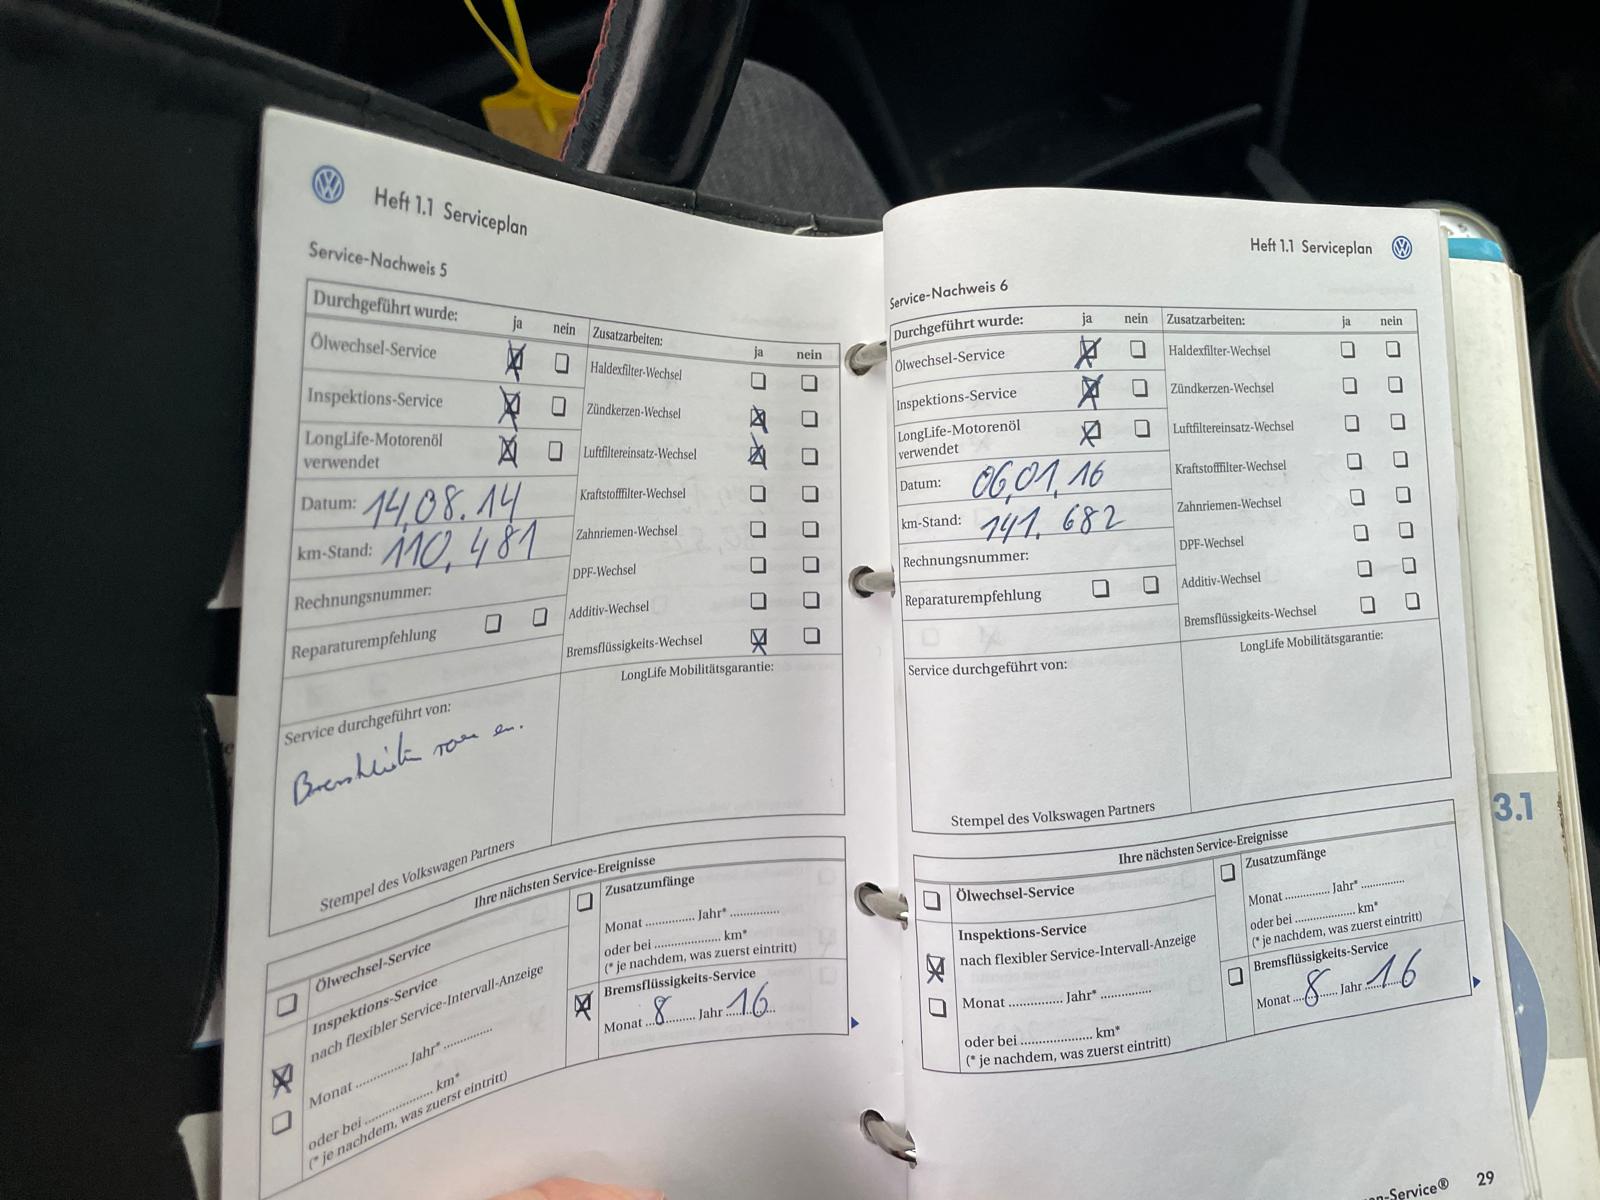 Heft 1.1 Serviceplan
Service-Nachweis 5
Durchgeführt wurde: ja nein
Ölwechsel-Service
Inspektions-Service
LongLife-Motorenöl
verwendet
Datum: 14.08.14
km-Stand: 110.481
Rechnungsnummer:
Reparaturempfehlung
Zusatzarbeiten: ja nein
Haldexfilter-Wechsel
Zündkerzen-Wechsel
Luftfiltereinsatz-Wechsel
Kraftstofffilter-Wechsel
Zahnriemen-Wechsel
DPF-Wechsel
Additiv-Wechsel
Bremsflüssigkeits-Wechsel
Service durchgeführt von:
Stempel des Volkswagen Partners
LongLife Mobilitätsgarantie:
Ihre nächsten Service-Ereignisse
Ölwechsel-Service
Inspektions-Service
nach flexibler Service-Intervall-Anzeige
Monat .............. Jahr* ..............
oder bei .................... km*
(* je nachdem, was zuerst eintritt)
Zusatzumfänge
Monat .............. Jahr* ..............
oder bei .................... km*
(* je nachdem, was zuerst eintritt)
Bremsflüssigkeits-Service
Monat ...8... Jahr ...16...
Heft 1.1 Serviceplan
Service-Nachweis 6
Durchgeführt wurde: ja nein
Ölwechsel-Service
Inspektions-Service
LongLife-Motorenöl
verwendet
Datum: 06.01.16
km-Stand: 141.682
Rechnungsnummer:
Reparaturempfehlung
Zusatzarbeiten: ja nein
Haldexfilter-Wechsel
Zündkerzen-Wechsel
Luftfiltereinsatz-Wechsel
Kraftstofffilter-Wechsel
Zahnriemen-Wechsel
DPF-Wechsel
Additiv-Wechsel
Bremsflüssigkeits-Wechsel
Service durchgeführt von:
Stempel des Volkswagen Partners
LongLife Mobilitätsgarantie:
Ihre nächsten Service-Ereignisse
Ölwechsel-Service
Inspektions-Service
nach flexibler Service-Intervall-Anzeige
Monat .............. Jahr* ..............
oder bei .................... km*
(* je nachdem, was zuerst eintritt)
Zusatzumfänge
Monat .............. Jahr* ..............
oder bei .................... km*
(* je nachdem, was zuerst eintritt)
Bremsflüssigkeits-Service
Monat ...8... Jahr ...16...
n-Service® 29
3.1